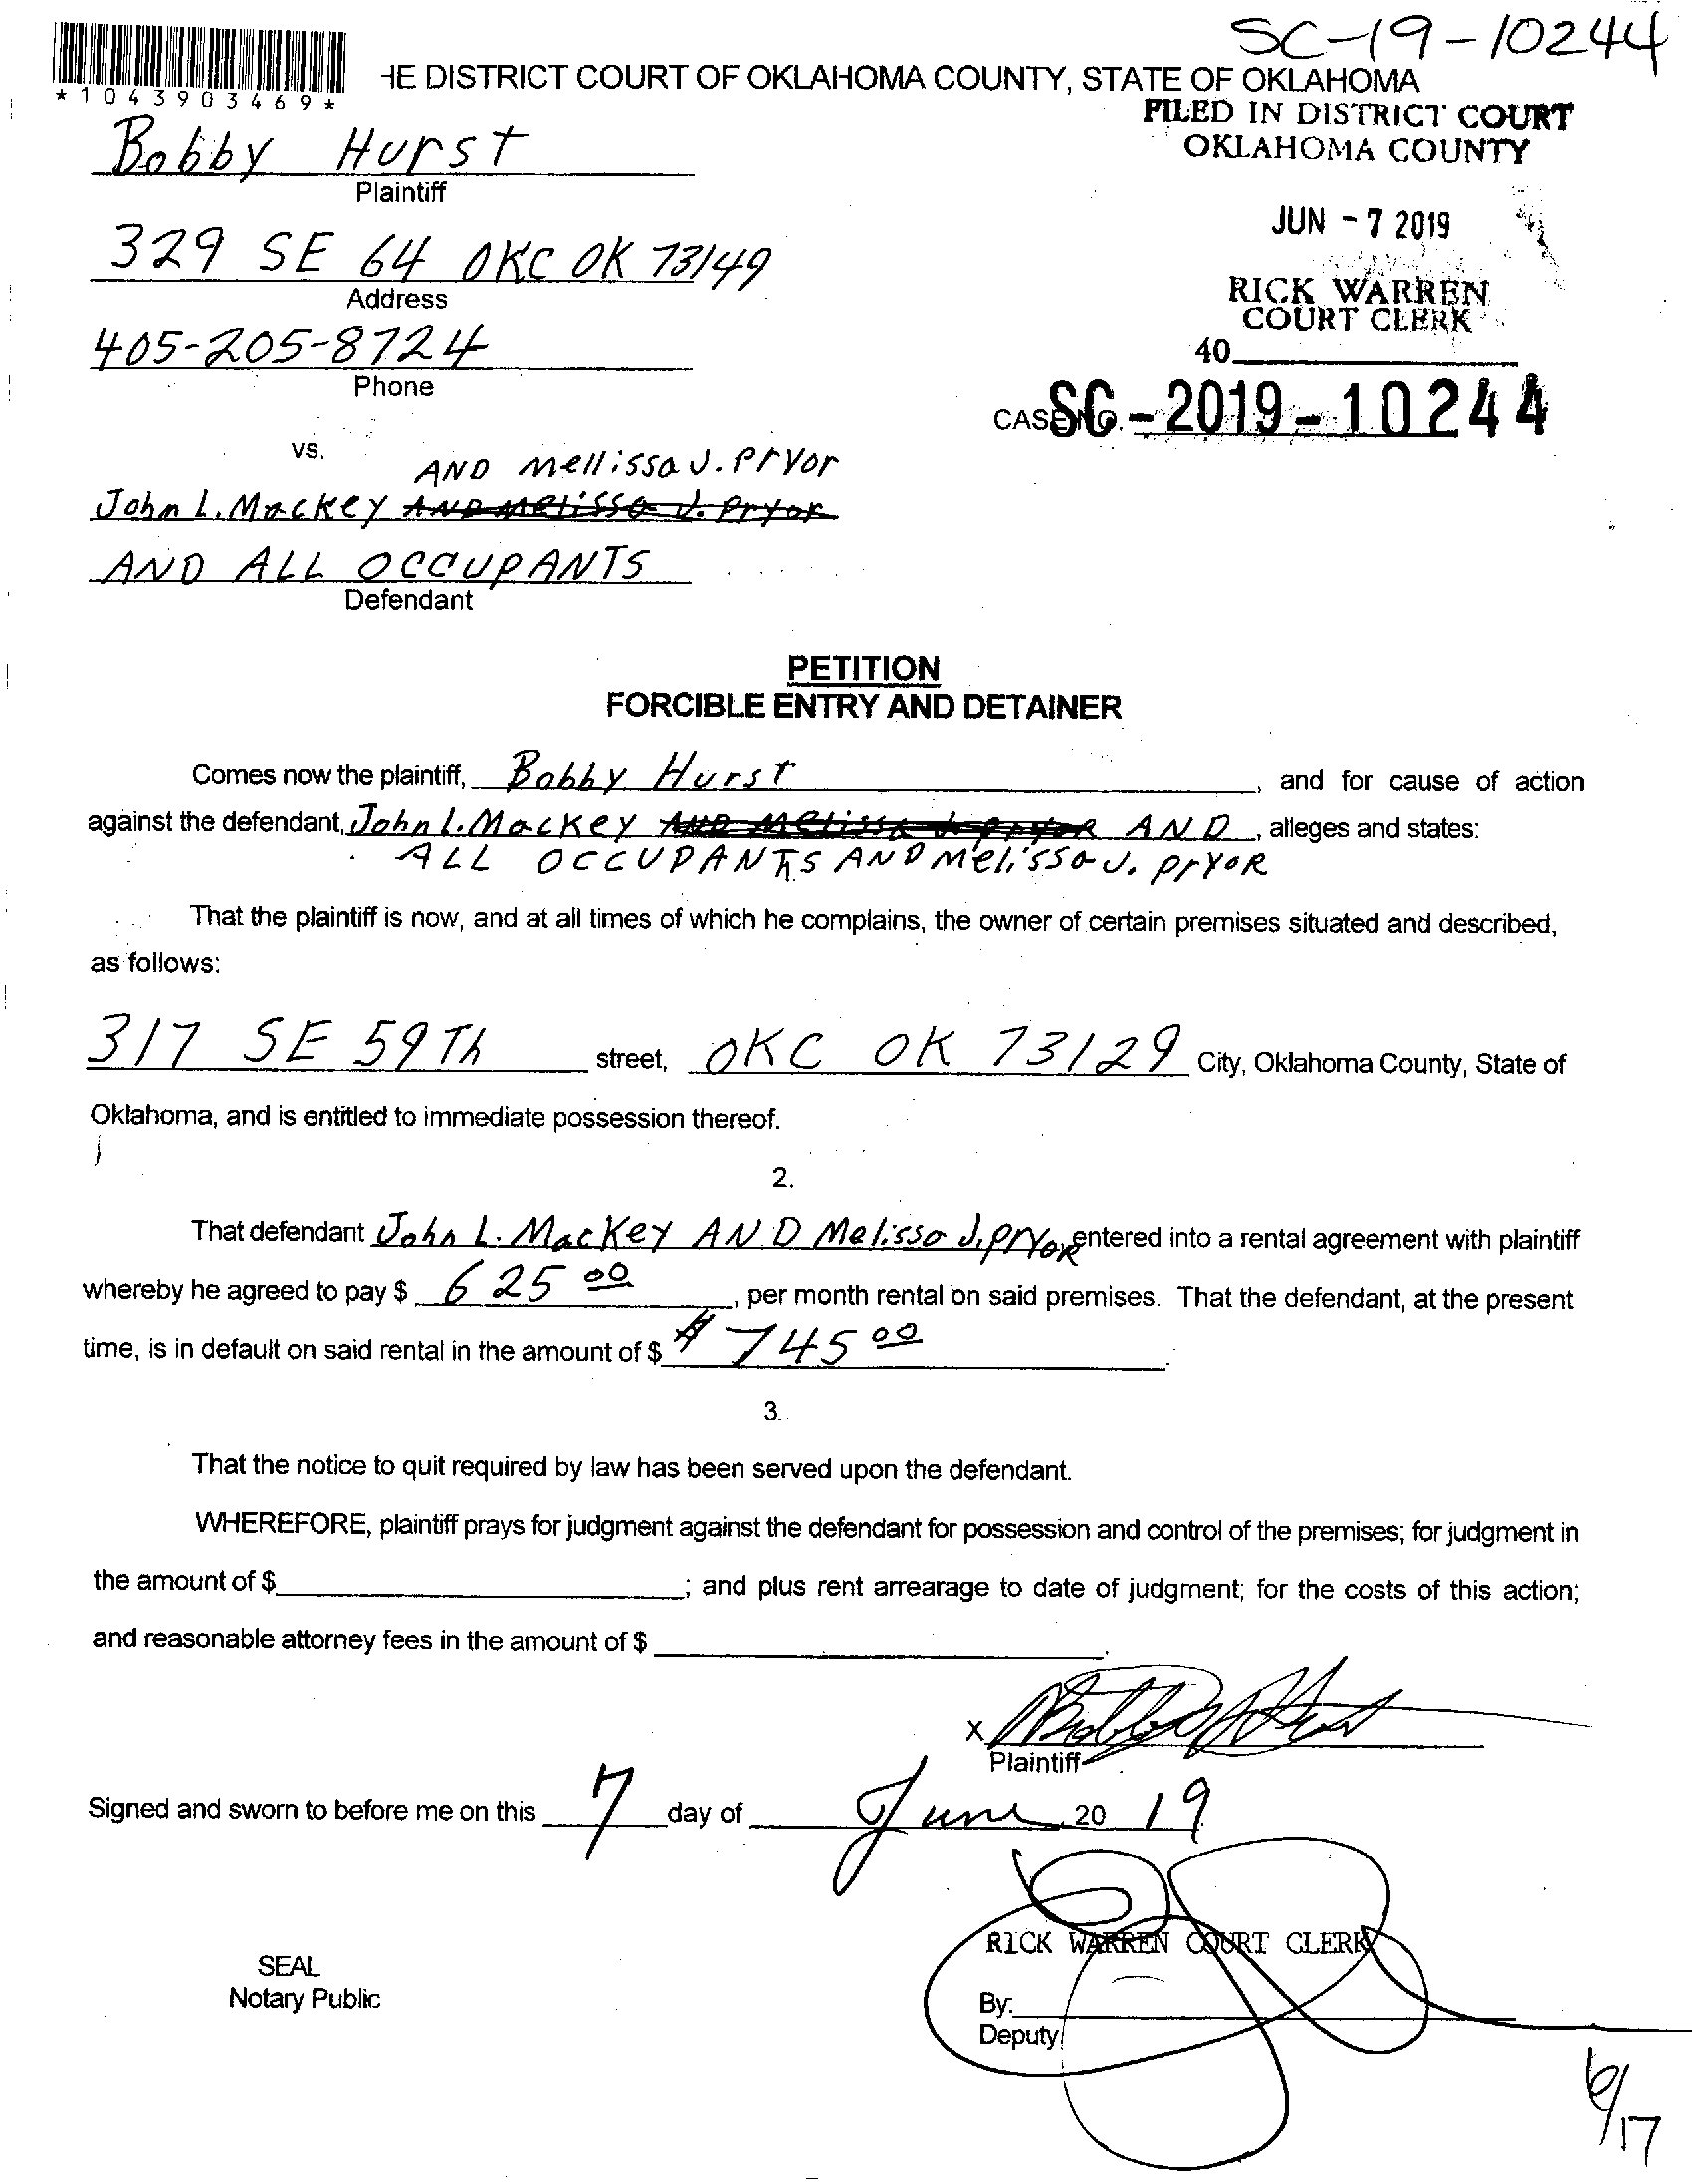 SC-19-10244
HE DISTRICT COURT OF OKLAHOMA COUNTY, STATE OF OKLAHOMA
*1043903469*
FILED IN DISTRICT COURT
OKLAHOMA COUNTY
Bobby Hurst
Plaintiff
JUN - 7 2019
329 SE 64 OKC OK 73149
Address
RICK WARREN
COURT CLERK
405-205-8724
Phone
40
CASE NO. SC-2019-10244
vs.
AND Mellissa J. Pryor
John L. Mackey AND Melissa J. Pryor
AND ALL OCCUPANTS
Defendant
PETITION
FORCIBLE ENTRY AND DETAINER
Comes now the plaintiff, Bobby Hurst, and for cause of action
against the defendant, John L. Mackey AND Melissa J. Pryor AND, alleges and states:
ALL OCCUPANTS AND Melissa J. Pryor
That the plaintiff is now, and at all times of which he complains, the owner of certain premises situated and described,
as follows:
317 SE 59Th street, OKC OK 73129 City, Oklahoma County, State of
Oklahoma, and is entitled to immediate possession thereof.
2.
That defendant John L. Mackey AND Melissa J. Pryor entered into a rental agreement with plaintiff
whereby he agreed to pay $ 625 00, per month rental on said premises. That the defendant, at the present
time, is in default on said rental in the amount of $ $ 745 00.
3.
That the notice to quit required by law has been served upon the defendant.
WHEREFORE, plaintiff prays for judgment against the defendant for possession and control of the premises; for judgment in
the amount of $ ; and plus rent arrearage to date of judgment; for the costs of this action;
and reasonable attorney fees in the amount of $ .
X Bobby Hurst
Plaintiff
Signed and sworn to before me on this 7 day of June, 20 19
RICK WARREN COURT CLERK
SEAL
Notary Public
By:
Deputy
6/17